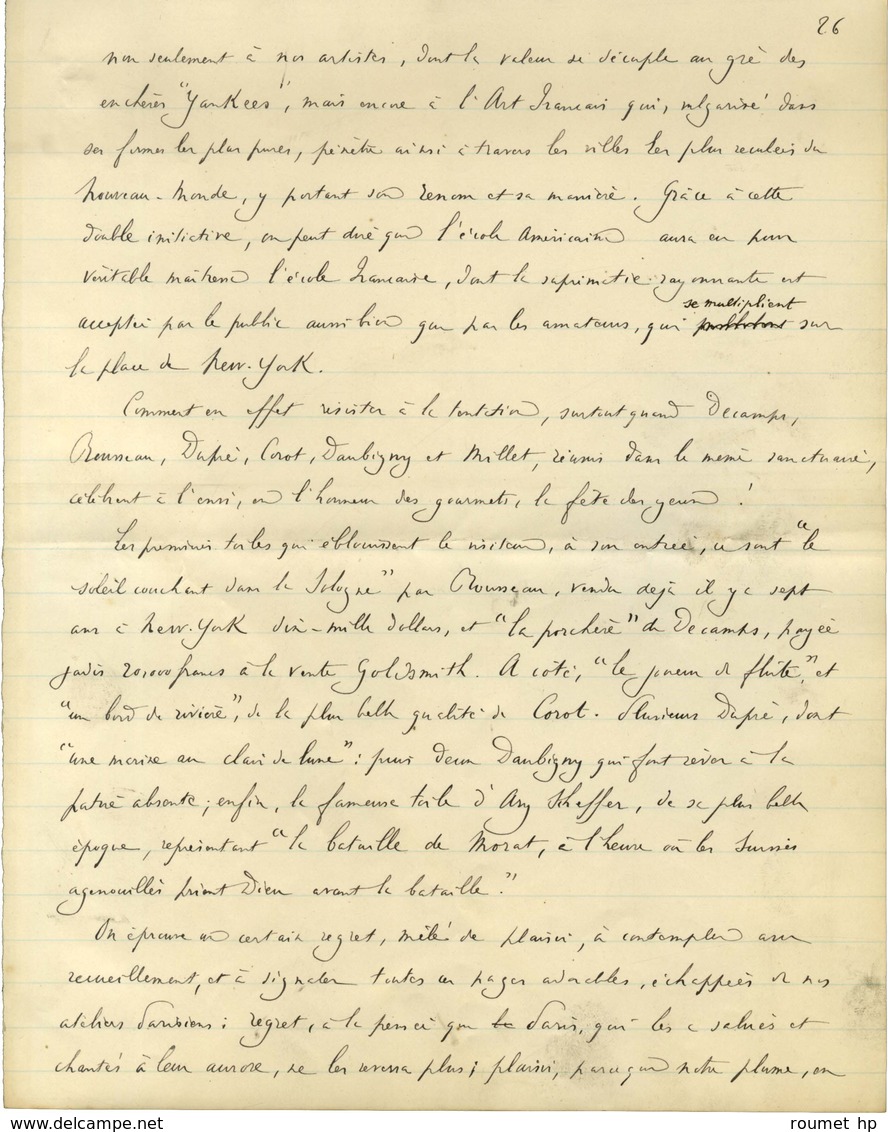 26
non seulement à nos artistes, dont la valeur se décuple au gré des
enchères "Yankees", mais encore à l'Art Français qui, vulgarisé dans
ses formes les plus pures, pénètre ainsi à travers les villes les plus reculées du
Nouveau-Monde, y portant son renom et sa manière. Grâce à cette
double initiative, on peut dire que l'école Américaine aura eu pour
véritable maîtresse l'école Française, dont la suprématie rayonnante est
se multiplient
acceptée par le public aussi bien que par les amateurs, qui sur
la place de New-York.
Comment en effet résister à la tentation, surtout quand Decamps,
Rousseau, Dupré, Corot, Daubigny et Millet, réunis dans le même sanctuaire,
célèbrent à l'envi, en l'honneur des gourmets, la fête des yeux !
Les premières toiles qui éblouissent le visiteur, à son entrée, ce sont "le
soleil couchant dans la Sologne" par Rousseau, vendu déjà il y a sept
ans à New-York dix-mille dollars, et "la porchère" de Decamps, payée
jadis 20,000 francs à la vente Goldsmith. A côté, "le joueur de flûte", et
"un bord de rivière", de la plus belle qualité de Corot. Plusieurs Dupré, dont
"une marine au clair de lune": puis deux Daubigny qui font rêver à la
patrie absente; enfin, la fameuse toile d'Ary Scheffer, de sa plus belle
époque, représentant "la bataille de Morat, à l'heure où les Suisses
agenouillés prient Dieu avant la bataille."
On éprouve un certain regret, mêlé de plaisir, à contempler avec
recueillement, et à signaler toutes ces pages adorables, échappées de nos
ateliers Parisiens: regret, à la pensée que Paris, qui les a salués et
chantés à leur aurore, ne les reverra plus; plaisir, parce que notre plume, en
roumet hp